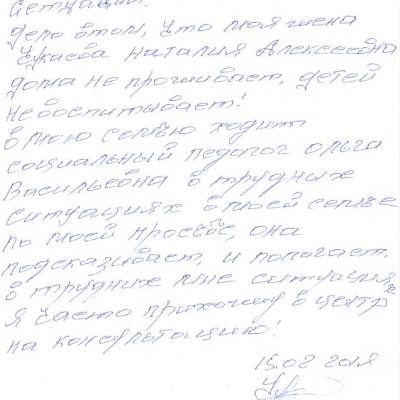 ситуации.
дело в том, что моя жена
Чукаева Наталия Алексеевна
дома не проживает, детей
не воспитывает!
в мою семью ходит
социальный педагог Ольга
Васильевна в трудных
ситуациях в моей семье
по моей просьбе, она
подсказывает, и помогает.
в трудних мне ситуациях
Я часто прихожу в центр
на консультацию!
15.02 201